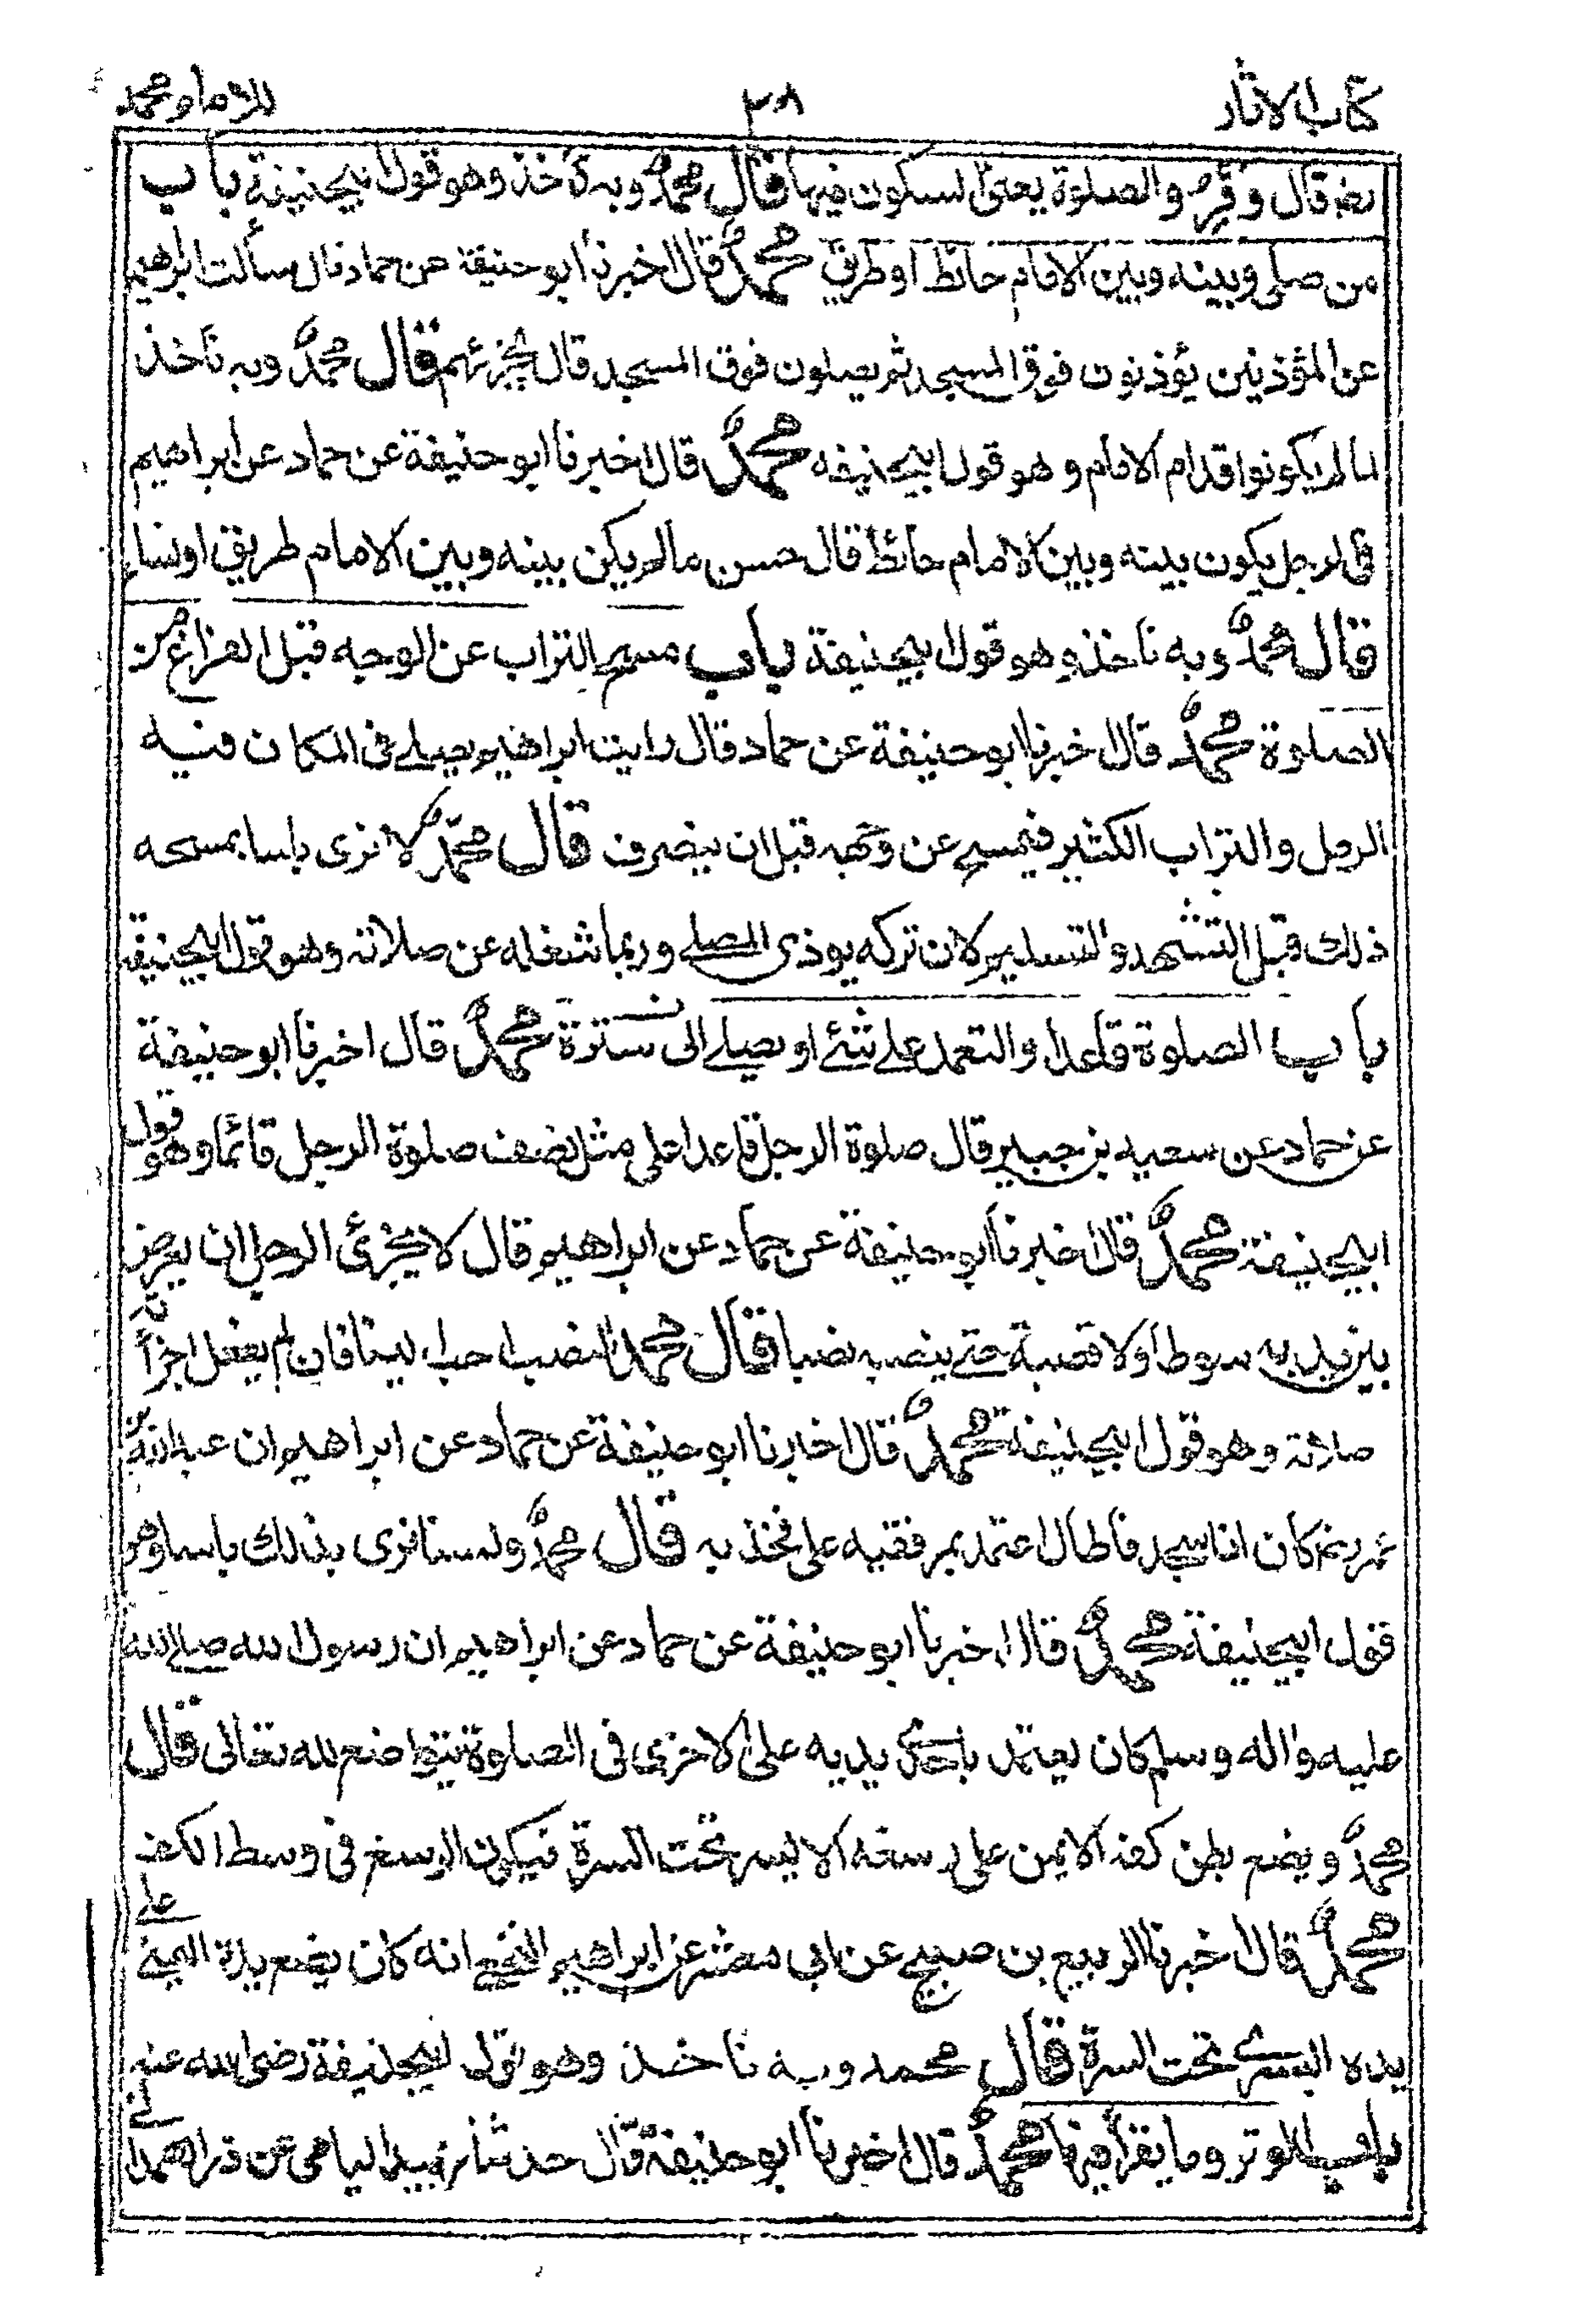 كتاب الاثار ٣٨ للامام محمد
قال وقروا الصلوة يعنى السكون فيها قال محمد وبه نأخذ وهو قول ابيحنيفة باب
من صلى وبينه وبين الامام حائط او طريق محمد قال اخبرنا ابو حنيفة عن حماد قال سألت ابراهيم
عن المؤذنين يؤذنون فوق المسجد ثم يصلون فوق المسجد قال يجزئهم قال محمد وبه نأخذ
مالم يكونوا قدام الامام وهو قول ابيحنيفه محمد قال اخبرنا ابو حنيفة عن حماد عن ابراهيم
فى الرجل يكون بينه وبين الامام حائط قال حسن مالم يكن بينه وبين الامام طريق او نساء
قال محمد وبه ناخذ وهو قول ابيحنيفة باب مسح التراب عن الوجه قبل الفراغ من
الصلوة محمد قال اخبرنا ابو حنيفة عن حماد قال رايت ابراهيم يصلے فى المكان فيه
الرمل والتراب الكثير فيمسح عن وجهه قبل ان ينصرف قال محمد لا نرى باسا بمسحه
ذلك قبل التشهد والتسليم لان تركه يوذى المصلے وربما شغله عن صلاته وهو قول ابيحنيفة
باب الصلوة قاعدا والتعمد علے شئے او يصلے الى سترة محمد قال اخبرنا ابو حنيفة
عن حماد عن سعيد بن جبير قال صلوة الرجل قاعدا على مثل نصف صلوة الرجل قائما وهو قول
ابيحنيفة محمد قال اخبرنا ابو حنيفة عن حماد عن ابراهيم قال لا يجزئ الرجل ان يعرض
بين يديه سوطا ولا قصبة حتے ينصبه نصبا قال محمد النصب احب الينا فان لم يفعل اجزأته
صلاته وهو قول ابيحنيفة محمد قال اخبرنا ابو حنيفة عن حماد عن ابراهيم ان عبد الله بن
عمر رضـ كان اذا سجد فأطال اعتمد بمرفقيه على فخذيه قال محمد ولسنا نرى بذلك باسا وهو
قول ابيحنيفة محمد قال اخبرنا ابو حنيفة عن حماد عن ابراهيم ان رسول الله صلے الله
عليه واله وسلم كان يعتمد باحدى يديه على الاخرى فى الصلوة يتواضع لله تعالى قال
محمد ويضع بطن كفه الايمن على رسغه الايسر تحت السرة فيكون الرسغ فى وسط الكف
محمد قال اخبرنا الربيع بن صبيح عن ابى معشر عن ابراهيم النخعے انه كان يضع يده اليمنے علے
يده اليسرى تحت السرة قال محمد وبه ناخذ وهو قول ابيحنيفة رضى الله عنه
باب الوتر وما يقرأ فيها محمد قال اخبرنا ابو حنيفة قال حدثنا زبيد اليامى عن ذر الهمدانے